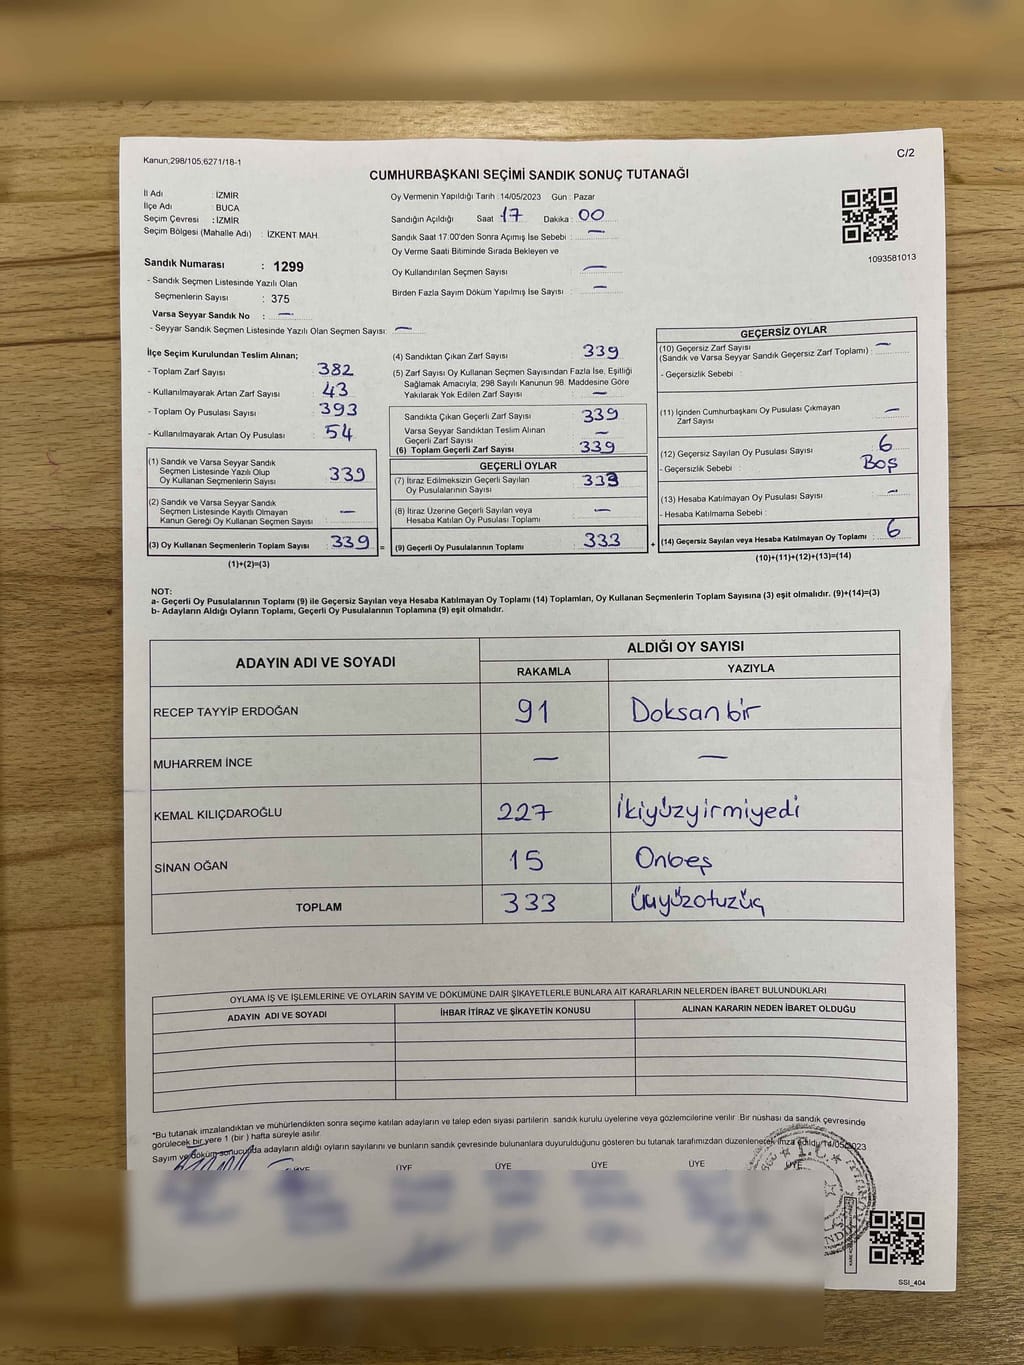 Kanun;298/105,6271/18-1
C/2
CUMHURBAŞKANI SEÇİMİ SANDIK SONUÇ TUTANAĞI
İl Adı : İZMİR
İlçe Adı : BUCA
Seçim Çevresi : İZMİR
Seçim Bölgesi (Mahalle Adı) : İZKENT MAH.
Oy Vermenin Yapıldığı Tarih : 14/05/2023 Gün : Pazar
Sandığın Açıldığı Saat : 17 Dakika : 00
Sandık Saat 17:00'den Sonra Açımış İse Sebebi : —
Oy Verme Saati Bitiminde Sırada Bekleyen ve
Oy Kullandırılan Seçmen Sayısı : —
Birden Fazla Sayım Döküm Yapılmış İse Sayısı : —
1093581013
Sandık Numarası : 1299
- Sandık Seçmen Listesinde Yazılı Olan
Seçmenlerin Sayısı : 375
Varsa Seyyar Sandık No : —
- Seyyar Sandık Seçmen Listesinde Yazılı Olan Seçmen Sayısı: —
İlçe Seçim Kurulundan Teslim Alınan;
- Toplam Zarf Sayısı : 382
- Kullanılmayarak Artan Zarf Sayısı : 43
- Toplam Oy Pusulası Sayısı : 393
- Kullanılmayarak Artan Oy Pusulası : 54
(1) Sandık ve Varsa Seyyar Sandık
Seçmen Listesinde Yazılı Olup
Oy Kullanan Seçmenlerin Sayısı : 339
(2) Sandık ve Varsa Seyyar Sandık
Seçmen Listesinde Kayıtlı Olmayan
Kanun Gereği Oy Kullanan Seçmen Sayısı : —
(3) Oy Kullanan Seçmenlerin Toplam Sayısı : 339
(1)+(2)=(3)
(4) Sandıktan Çıkan Zarf Sayısı : 339
(5) Zarf Sayısı Oy Kullanan Seçmen Sayısından Fazla İse, Eşitliği
Sağlamak Amacıyla, 298 Sayılı Kanunun 98. Maddesine Göre
Yakılarak Yok Edilen Zarf Sayısı : —
Sandıkta Çıkan Geçerli Zarf Sayısı : 339
Varsa Seyyar Sandıktan Teslim Alınan
Geçerli Zarf Sayısı : —
(6) Toplam Geçerli Zarf Sayısı : 339
=
GEÇERLİ OYLAR
(7) İtiraz Edilmeksizin Geçerli Sayılan
Oy Pusulalarının Sayısı : 333
(8) İtiraz Üzerine Geçerli Sayılan veya
Hesaba Katılan Oy Pusulası Toplamı : —
(9) Geçerli Oy Pusulalarının Toplamı : 333
+
GEÇERSİZ OYLAR
(10) Geçersiz Zarf Sayısı
(Sandık ve Varsa Seyyar Sandık Geçersiz Zarf Toplamı) : —
- Geçersizlik Sebebi :
(11) İçinden Cumhurbaşkanı Oy Pusulası Çıkmayan
Zarf Sayısı : —
(12) Geçersiz Sayılan Oy Pusulası Sayısı : 6
- Geçersizlik Sebebi : Boş
(13) Hesaba Katılmayan Oy Pusulası Sayısı : —
- Hesaba Katılmama Sebebi :
(14) Geçersiz Sayılan veya Hesaba Katılmayan Oy Toplamı : 6
(10)+(11)+(12)+(13)=(14)
NOT:
a- Geçerli Oy Pusulalarının Toplamı (9) ile Geçersiz Sayılan veya Hesaba Katılmayan Oy Toplamı (14) Toplamları, Oy Kullanan Seçmenlerin Toplam Sayısına (3) eşit olmalıdır. (9)+(14)=(3)
b- Adayların Aldığı Oyların Toplamı, Geçerli Oy Pusulalarının Toplamına (9) eşit olmalıdır.
ADAYIN ADI VE SOYADI
ALDIĞI OY SAYISI
RAKAMLA YAZIYLA
RECEP TAYYİP ERDOĞAN 91 Doksan bir
MUHARREM İNCE — —
KEMAL KILIÇDAROĞLU 227 İkiyüzyirmiyedi
SİNAN OĞAN 15 Onbeş
TOPLAM 333 Üçyüzotuzüç
OYLAMA İŞ VE İŞLEMLERİNE VE OYLARIN SAYIM VE DÖKÜMÜNE DAİR ŞİKAYETLERLE BUNLARA AİT KARARLARIN NELERDEN İBARET BULUNDUKLARI
ADAYIN ADI VE SOYADI İHBAR İTİRAZ VE ŞİKAYETİN KONUSU ALINAN KARARIN NEDEN İBARET OLDUĞU
*Bu tutanak imzalandıktan ve mühürlendikten sonra seçime katılan adayların ve talep eden siyasi partilerin sandık kurulu üyelerine veya gözlemcilerine verilir .Bir nüshası da sandık çevresinde
görülecek bir yere 1 (bir ) hafta süreyle asılır
Sayım ve döküm sonucunda adayların aldığı oyların sayılarını ve bunların sandık çevresinde bulunanlara duyurulduğunu gösteren bu tutanak tarafımızdan düzenlenerek imza edildi.14/05/2023
ÜYE ÜYE ÜYE ÜYE ÜYE ÜYE
T.C.
SSI_404